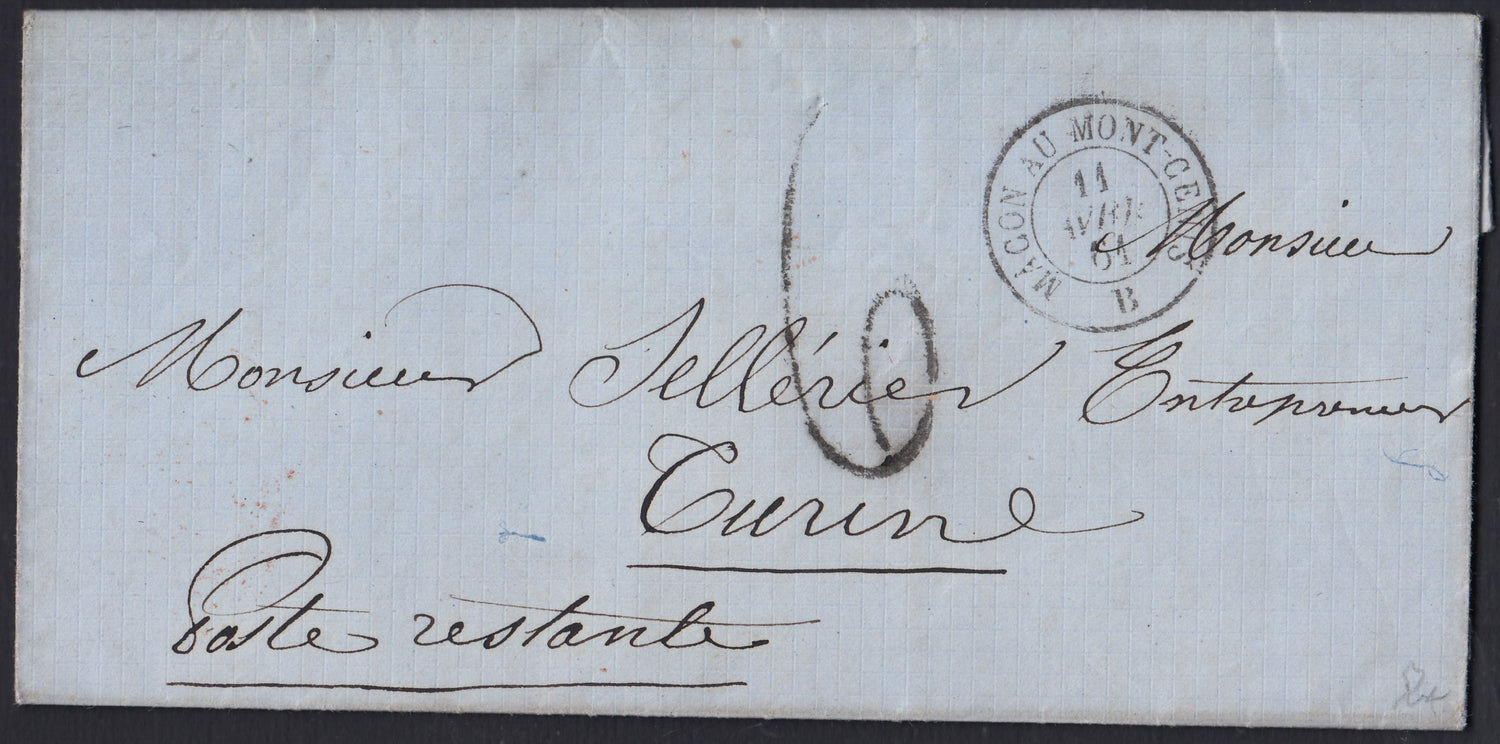 MACON AU MONT-CENIS
11
AVRIL
61
B
6
Monsieur
Monsieur Selłérier Entrepreneur
Turin
Poste restante